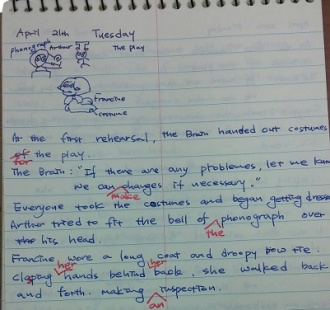 April 21th Tuesday
phonograph Arthur the play
Francine
costume
At the first rehearsal, the Brain handed out costumes
of the play.
for
The Brain: "If there are any problemes, let me know
we can changes if necessary."
make
Everyone took the costumes and began getting dressed
Arthur tried to fit the bell of phonograph over
the
the his head.
Francine wore a long coat and droopy bow tie.
her her
Clasping hands behind back, she walked back
and forth. making inspection.
an